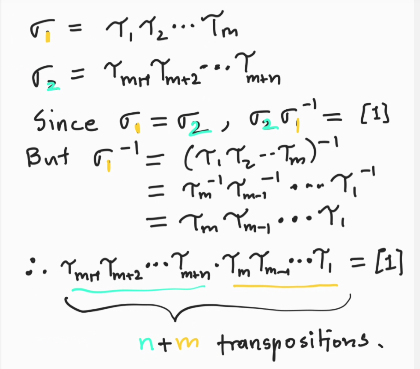 σ₁ = τ₁ τ₂ ⋯ τₘ
σ₂ = τₘ₊₁ τₘ₊₂ ⋯ τₘ₊ₙ
Since σ₁ = σ₂ , σ₂ σ₁⁻¹ = [1]
But σ₁⁻¹ = (τ₁ τ₂ ⋯ τₘ)⁻¹
= τₘ⁻¹ τₘ₋₁⁻¹ ⋯ τ₁⁻¹
= τₘ τₘ₋₁ ⋯ τ₁
∴ τₘ₊₁ τₘ₊₂ ⋯ τₘ₊ₙ · τₘ τₘ₋₁ ⋯ τ₁ = [1]
n+m transpositions.